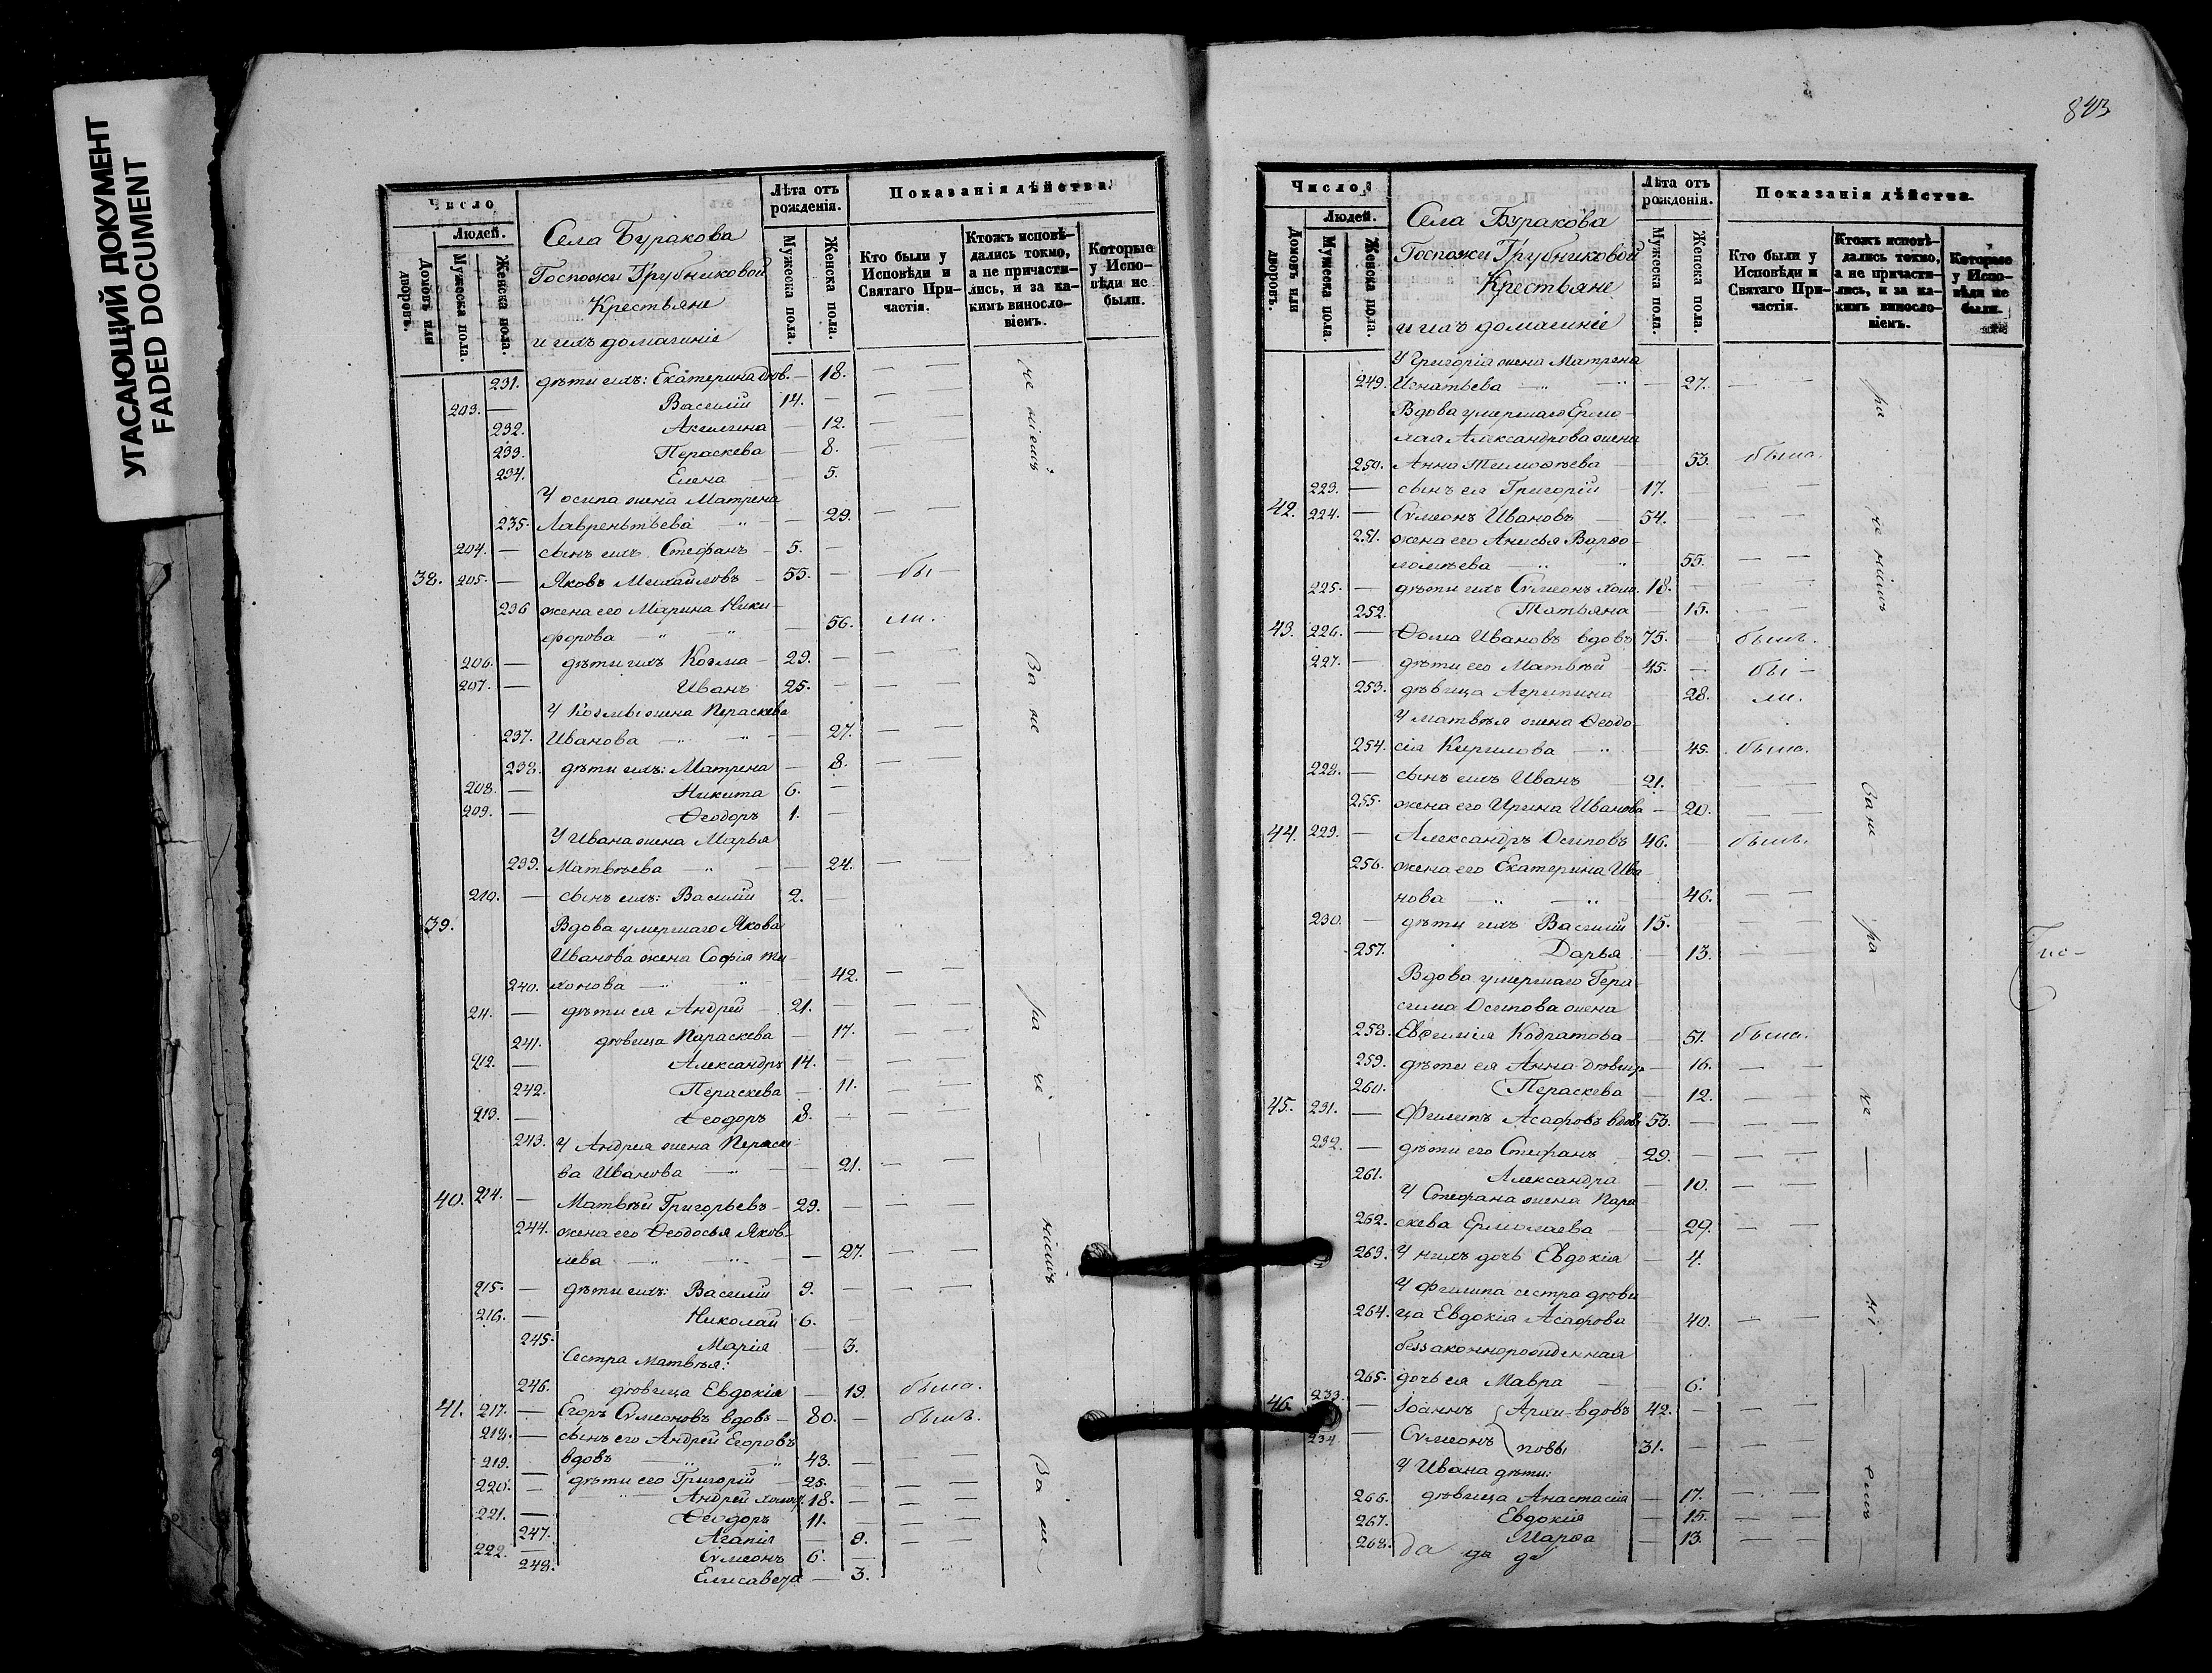 УГАСАЮЩИЙ ДОКУМЕНТ
FADED DOCUMENT
Число
Людей.
Домовъ или дворовъ.
Мужеска пола.
Женска пола.
Села Буракова
Госпожи Трубниковой
Крестьяне
и ихъ домашніе
Лѣта отъ рожденія.
Мужеска пола.
Женска пола.
Показанія дѣйства.
Кто были у Исповѣди и Святаго При-
частія.
Ктожъ исповѣ-
дались токмо,
а не причасти-
лись, и за ка-
кимъ винослo-
віемъ.
Которые
у Испо-
вѣди не
были.
231. дѣти ихъ: Екатерина дѣв. — 18. — —
203. — Василій 14. — —
232. Акилина — 12. —
233. Параскева — 8. —
234. Елена — 5.
У осипа жена Матрена
235. Лаврентьева — 29. — —
204. — сынъ ихъ Стефанъ 5. —
38. 205. — Яковъ Михайловъ 55. — бы —
236 жена его Марина Ники-
форова — 56. ли.
206. — дѣти ихъ Козма 29. — — —
207. — Иванъ 25. — — —
У Козмы жена Параскева
237. Иванова — 27. — —
238. дѣти ихъ: Матрена — 8. — —
208. — Никита 6. —
209. — Ѳеодоръ 1. —
У Ивана жена Марья
239. Матвѣева — 24. — —
210. — сынъ ихъ: Василій 2. —
39. Вдова умершаго Якова
Иванова жена Софія Ти-
240. хонова — 42. — —
211. — дѣти ея Андрей 21. — — —
241. дѣвица Параскева — 17. — —
212. — Александръ 14. — — —
242. Пераскева — 11. — —
213. — Ѳеодоръ 8. — — —
243. У Андрея жена Параске-
ва Иванова — 21. — —
40. 214. — Матвѣй Григорьевъ — 29. — — —
244. жена его Ѳеодосья Яков-
лева — 27. — —
215. — дѣти ихъ: Василій 9. — — —
216. — Николай 6. —
245. Марія — 3.
Сестра Матвѣя:
246. дѣвица Евдокія — 19. была.
41. 217. — Егоръ Сѵмеоновъ вдовъ — 80. — былъ.
218. — сынъ его Андрей Егоровъ
вдовъ 43. — — —
219. — дѣти его Григорій 25. — — —
220. — Андрей холост. 18. — — —
221. — Ѳеодоръ 11. — — —
247. Агапія — 9. — —
222. — Сѵмеонъ 6. —
248. Елисавета — 3.
За не
843
Число
Людей.
Домовъ или дворовъ.
Мужеска пола.
Женска пола.
Села Буракова
Госпожи Трубниковой
Крестьяне
и ихъ домашніе
Лѣта отъ рожденія.
Мужеска пола.
Женска пола.
Показанія дѣйства.
Кто были у Исповѣди и Святаго При-
частія.
Ктожъ исповѣ-
дались токмо,
а не причасти-
лись, и за ка-
кимъ винослo-
віемъ.
Которые
у Испо-
вѣди не
были.
У Григорія жена Матрена
249. Игнатьева — 27. — —
Вдова умершаго Ермо-
лая Александрова жена
250. Анна Тимоѳѣева — 53. была.
223. — сынъ ея Григорій 17. — — —
42. 224. — Сѵмеонъ Ивановъ 54. — — —
251. жена его Анисья Варѳо-
ломѣева 55. — —
225. — дѣти ихъ Сѵмеонъ холо. 18. — — —
252. Татьяна — 15. — —
43. 226. — Ѳома Ивановъ вдовъ 75. — былъ.
227. — дѣти его Матвѣй 45. — бы —
253. дѣвица Агрипина 28. ли.
У матвѣя жена Ѳеодо-
254. сія Кирилова — 45. была.
228. — сынъ ихъ Иванъ 21. — —
255. жена его Ирина Иванова — 20. — —
44. 229. — Александръ Осиповъ 46. — былъ.
256. жена его Екатерина Ива
нова — 46. — —
230. — дѣти ихъ Василій 15. — — —
257. Дарья — 13. — —
Вдова умершаго Гера-
сима Осипова жена
258. Евфимія Кодратова — 51. была.
259. дѣти ея Анна дѣвица — 16. — —
260. Пераскева — 12. — —
45. 231. — Филипъ Асафовъ вдовъ 53. — — —
232. — дѣти его Стефанъ 29. — — —
261. Александра — 10. — —
У Стефана жена Пара
262. скева Ермолаева — 29. — —
263. У нихъ дочь Евдокія — 4.
У Филипа сестра дѣви
264. ца Евдокія Асафова 40. — —
беззаконнорожденная
265. дочь ея Мавра — 6.
46. 233. — Іоаннъ Архи- вдовъ 42. — — —
234. — Сѵмеонъ повы 31. — — —
У Ивана дѣти:
266. дѣвица Анастасія — 17. — —
267. Евдокія — 15. — —
268. Марѳа — 13. — —